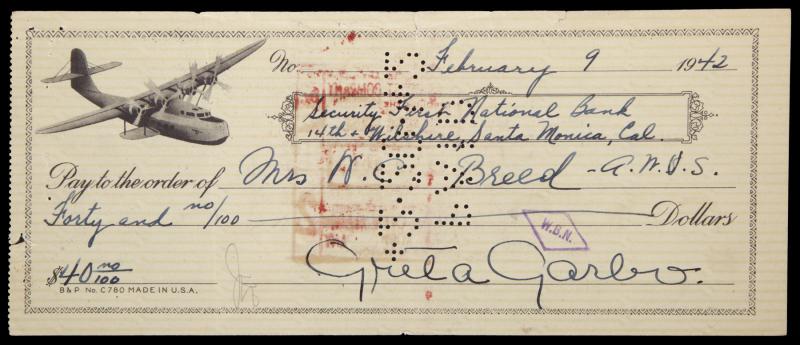 No. February 9 1942
Security First National Bank
14th + Wilshire, Santa Monica, Cal.
Pay to the order of Mrs W. C. Breed - A.W.V.S.
Forty and no/100 Dollars
W.B.N.
$40 no/100
Greta Garbo.
B & P No. C780 MADE IN U.S.A.